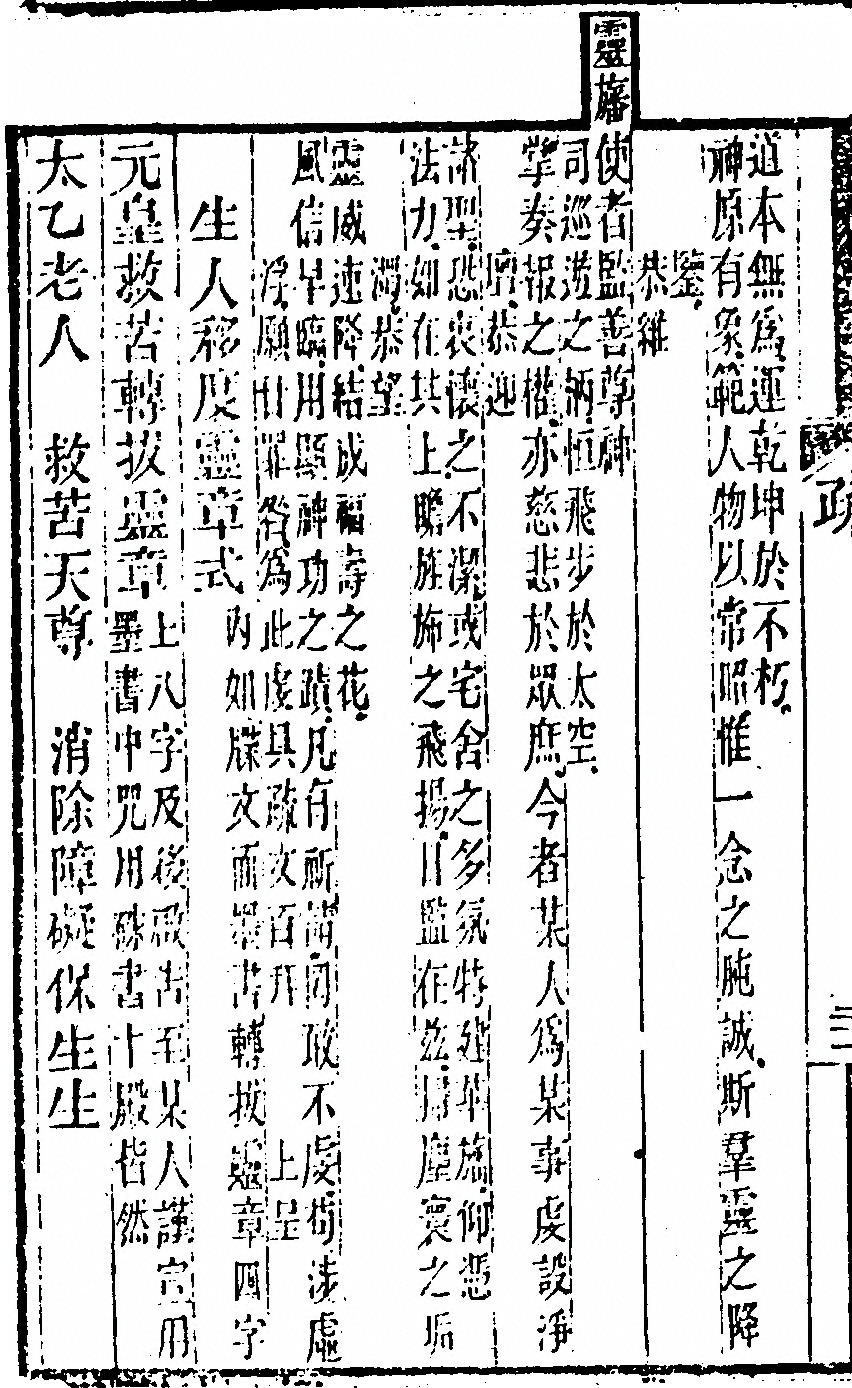 疏
三
道本無爲運乾坤於不朽
神原有象範人物以常昭惟一念之肫誠斯羣靈之降
鑒
恭維
靈旛使者監善尊神
司巡遊之柄恒飛步於太空
掌奏報之權亦慈悲於眾庶今者某人爲某事虔設淨
壇恭迎
諸聖恐衷懷之不潔或宅舍之多氛特建華旛仰憑
法力如在其上瞻旌旆之飛揚日監在兹掃塵寰之垢
濁恭望
靈威速降結成福壽之花
風信早臨用顯神功之蹟凡有祈請罔敢不虔苟涉虛
浮願甘罪咎爲此虔具疏文百拜 上呈
生人移度靈章式 內如牒文而墨書轉拔靈章四字
元皇救苦轉拔靈章 上八字及後啟吿至某人謹宣用
墨書中咒用硃書十殿皆然
太乙老人 救苦天尊 消除障礙保生生